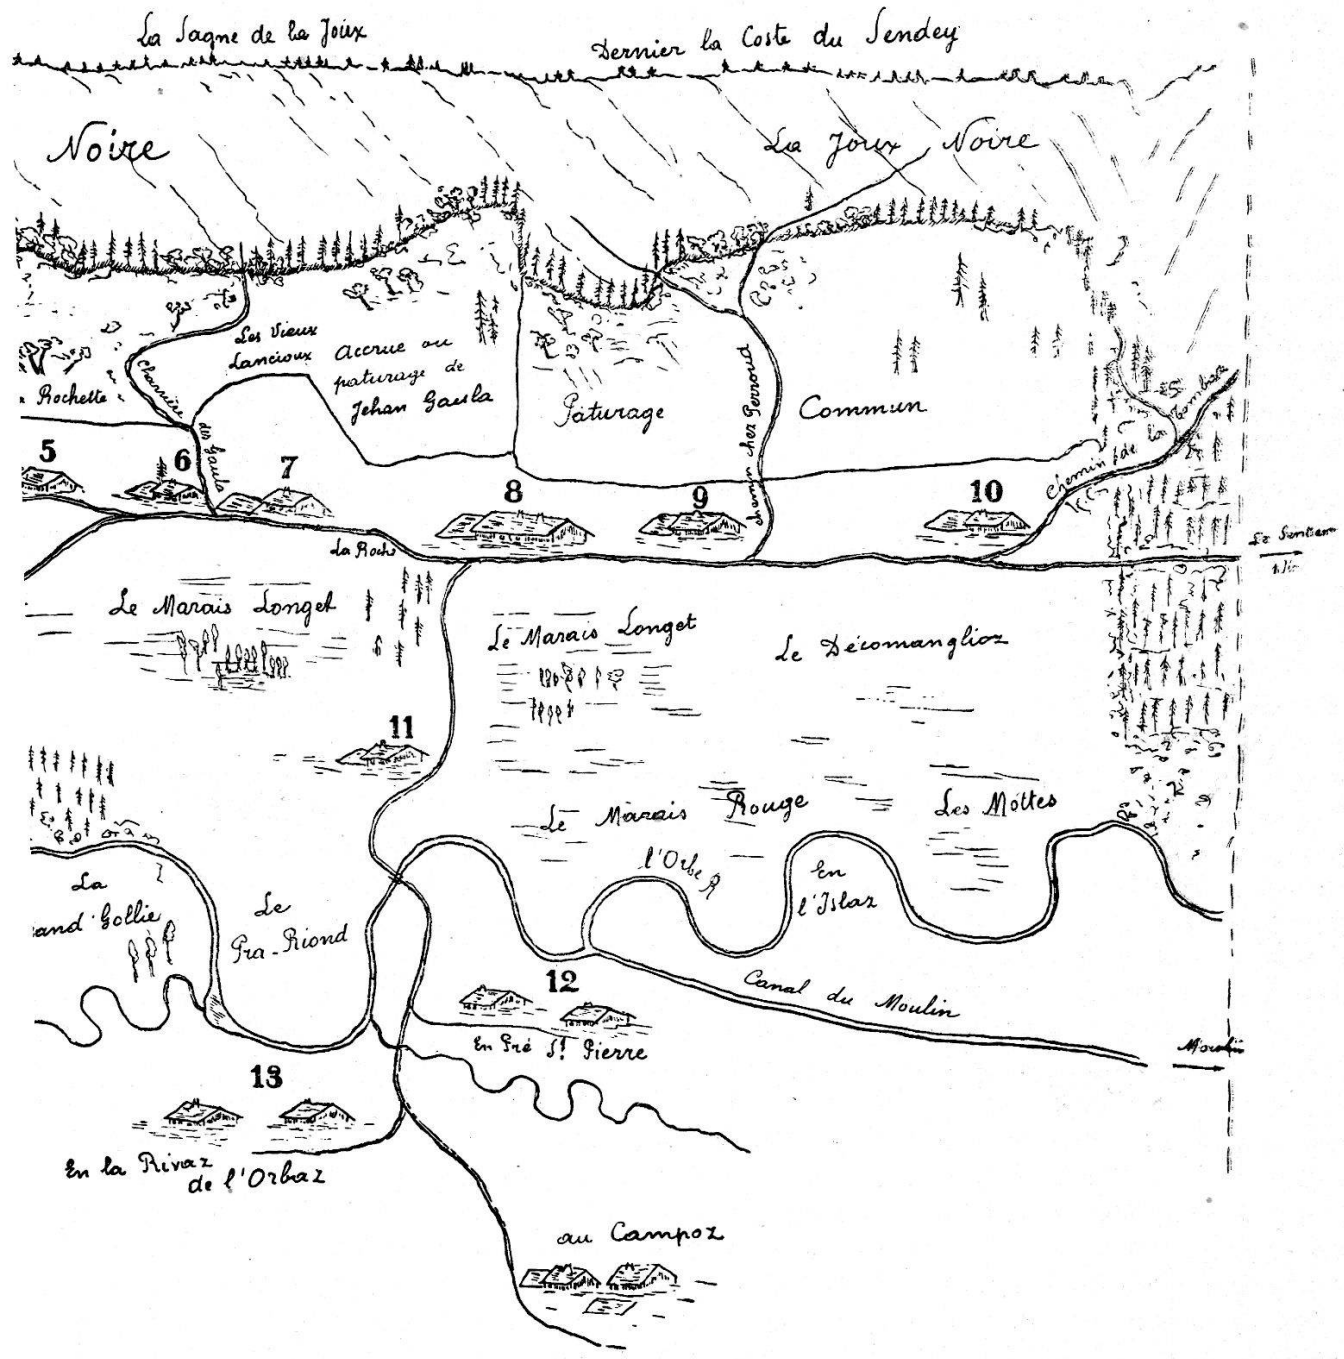 La Sagne de la Joux
Dernier la Coste du Sendey
Noire
La Joux Noire
Les Vieux
Lancioux
Accrue ou
paturage de
Jehan Gaula
Charrière
des Gaula
Rochette
Pâturage
Commun
chemin chez Perroud
Chemin de la Combaz
5
6
7
8
9
10
La Roche
Le Sentier
Le Marais Longet
Le Marais Longet
Le Décomanglioz
11
Le Marais Rouge
Les Mottes
l'Orbe R
En
l'Islaz
La
and'Gollie
Le
Pra-Riond
12
Canal du Moulin
En Pré St Pierre
Moulin
13
En la Rivaz
de l'Orbaz
au Campoz